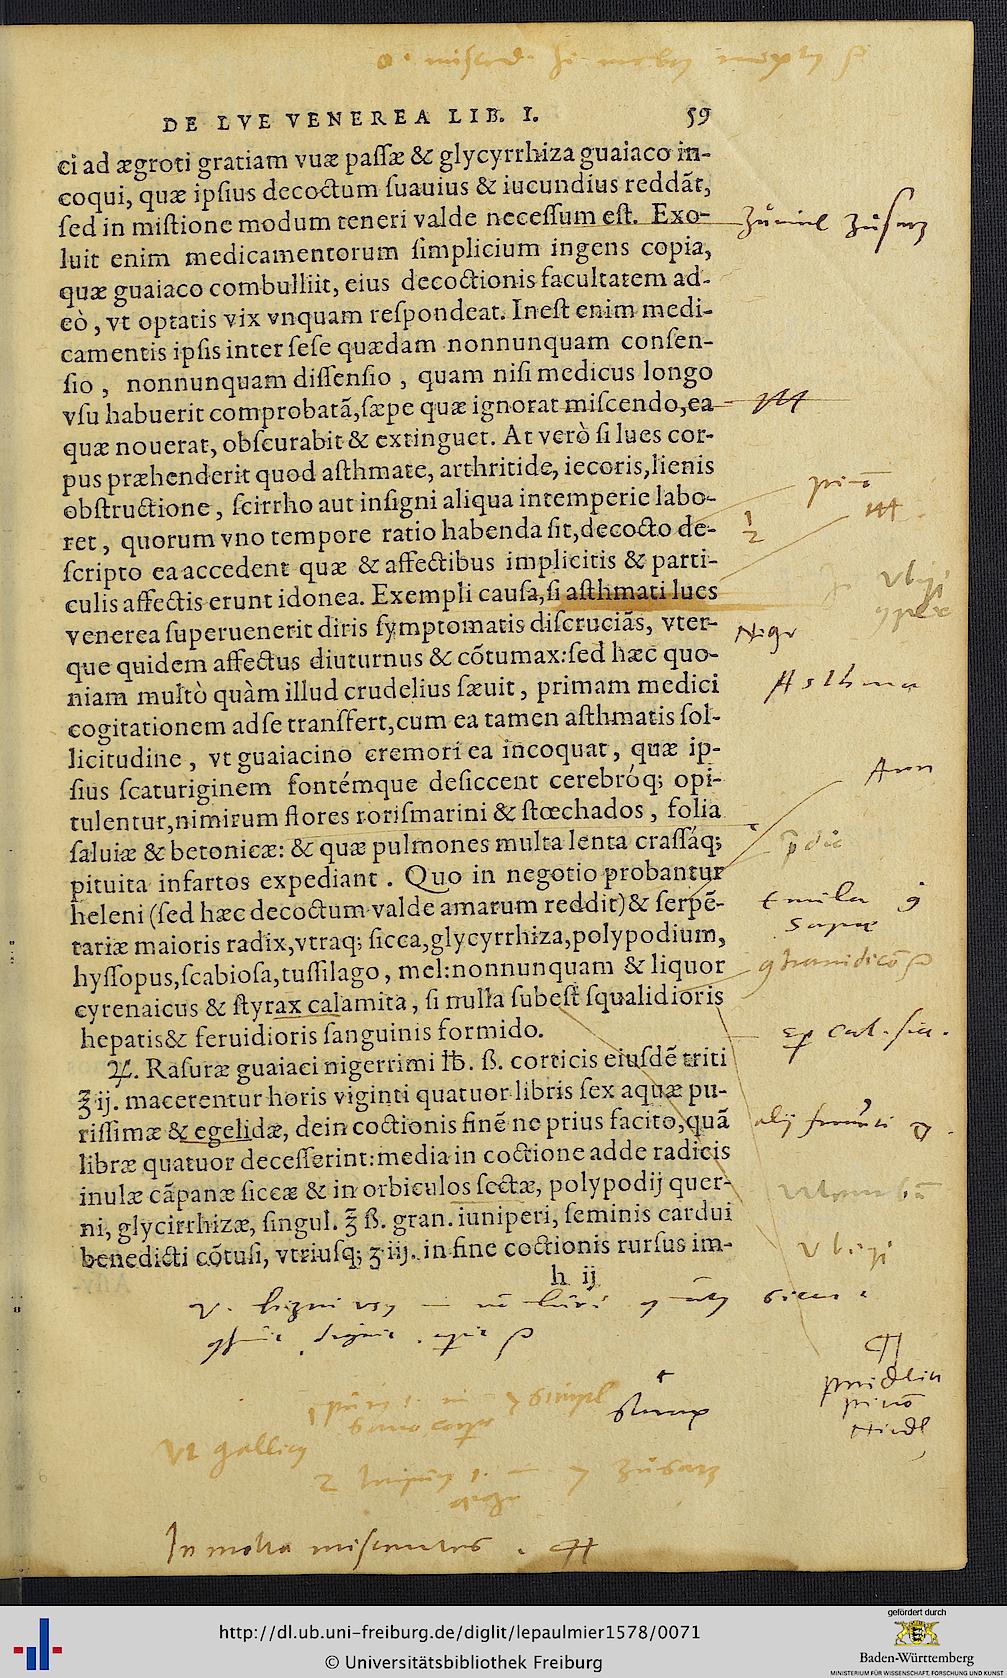 DE LVE VENEREA LIB. I. 59
ci ad ægroti gratiam vuæ paſſæ & glycyrrhiza guaiaco in-
coqui, quæ ipſius decoctum ſuauius & iucundius reddãt,
ſed in miſtione modum teneri valde neceſſum eſt. Exo-
luit enim medicamentorum ſimplicium ingens copia,
quæ guaiaco combulliit, eius decoctionis facultatem ad-
eò, vt optatis vix vnquam reſpondeat. Ineſt enim medi-
camentis ipſis inter ſeſe quædam nonnunquam conſen-
ſio, nonnunquam diſſenſio, quam niſi medicus longo
vſu habuerit comprobatã, ſæpe quæ ignorat miſcendo, ea
quæ nouerat, obſcurabit & extinguet. At verò ſi lues cor-
pus præhenderit quod aſthmate, arthritide, iecoris, lienis
obſtructione, ſcirrho aut inſigni aliqua intemperie labo-
ret, quorum vno tempore ratio habenda ſit, decocto de-
ſcripto ea accedent quæ & affectibus implicitis & parti-
culis affectis erunt idonea. Exempli cauſa, ſi aſthmati lues
venerea ſuperuenerit diris ſymptomatis diſcruciãs, vter-
que quidem affectus diuturnus & cõtumax: ſed hæc quo-
niam multò quàm illud crudelius ſæuit, primam medici
cogitationem ad ſe tranſfert, cum ea tamen aſthmatis ſol-
licitudine, vt guaiacino cremori ea incoquat, quæ ip-
ſius ſcaturiginem fontémque deſiccent cerebróq; opi-
tulentur, nimirum flores roriſmarini & ſtœchados, folia
ſaluiæ & betonicæ: & quæ pulmones multa lenta craſſáq;
pituita infartos expediant. Quo in negotio probantur
heleni (ſed hæc decoctum valde amarum reddit) & ſerpẽ-
tariæ maioris radix, vtraq; ſicca, glycyrrhiza, polypodium,
hyſſopus, ſcabioſa, tuſſilago, mel: nonnunquam & liquor
cyrenaicus & ſtyrax calamita, ſi nulla ſubeſt ſqualidioris
hepatis & feruidioris ſanguinis formido.
℞. Raſuræ guaiaci nigerrimi ℔. ß. corticis eiuſdẽ triti
ʒ ij. macerentur horis viginti quatuor libris ſex aquæ pu-
riſſimæ & egelidæ, dein coctionis finẽ ne prius facito, quã
libræ quatuor deceſſerint: media in coctione adde radicis
inulæ cãpanæ ſiccæ & in orbiculos ſectæ, polypodij quer-
ni, glycirrhizæ, ſingul. ℥ ß. gran. iuniperi, ſeminis cardui
benedicti cõtuſi, vtriuſq; ʒ iij. in fine coctionis rurſus im-
h ij
Asthma
http://dl.ub.uni-freiburg.de/diglit/lepaulmier1578/0071
© Universitätsbibliothek Freiburg
gefördert durch
Baden-Württemberg
MINISTERIUM FÜR WISSENSCHAFT, FORSCHUNG UND KUNST